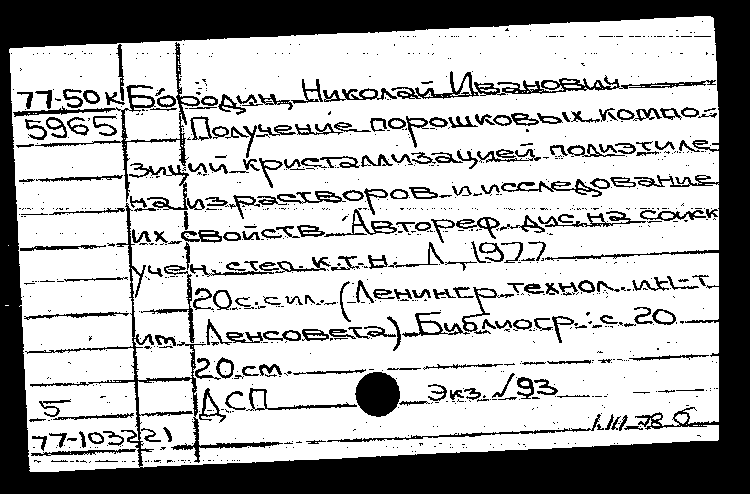 77-50к Бородин, Николай Иванович
5965 Получение порошковых компо-
зиций кристаллизацией полиэтиле-
на из растворов и исследование
их свойств. Автореф. дис. на соиск
учен. степ. к.т.н. Л., 1977
20 с. с ил. (Ленингр. технол. ин-т
им. Ленсовета) Библиогр.: с. 20
20 см.
5 ДСП Экз. №93
77-103221 1.III-78 Б